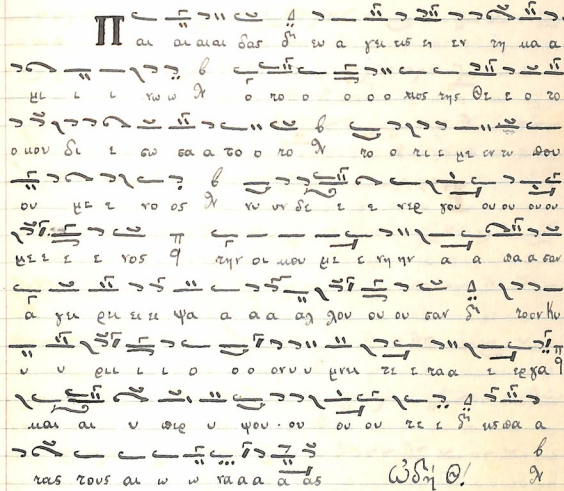 Π αι αι αιαι δας δι ευ α γει εις ει εν τη κα α
μι ι ι νω ω Ν ο το ο ο ο ο κος της Θε ε ο το
ο κου δι ε σω σα α το ο το Ν το ο τε ε με εν τυ που
ου με ε νο ος Ν νυ υν δε ε ε νερ γου ου ου ου ου
με ε ε ε νος q την οι κου με ε νη ην α α πα α σαν
α γει ρει ει ει ψα α α α αλ λου ου ου σαν δι τον Κυ
υ υ ρι ι ι ι ο ο ον υ υ μνει τε ε τα α ε ε ργα q
και αι υ περ υ ψου ου ου ου τε ε δι εις πα α
τας τους αι ω ω να α α α ας ᾠδή Θ! Ν